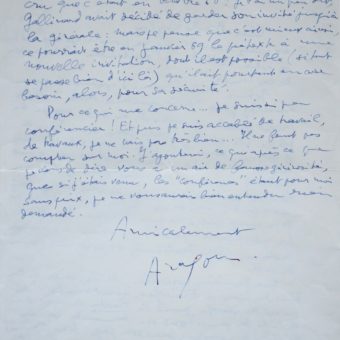 que c'était en
Gallimard avait décidé de garder son invité jusqu'à
la générale : mais je pense que c'est mieux ainsi,
ce pourrait être en janvier 69 le prétexte à une
nouvelle invitation, dont il est possible (si tout
se passe bien d'ici là) qu'il ait pourtant
besoin, alors, pour sa sécurité.
Pour ce qui me concerne... je suis si peu
conférencier ! Et puis je suis accablé de travail,
de travaux, je ne vais pas très bien... Il ne faut pas
compter sur moi. J'ajouterai, ce qui après ce que
je viens de dire a un air de fausse générosité,
que si j'étais venu, les "conférences" étant pour moi
sans prix, je ne voudrais bien entendu rien
demandé.
Amicalement
Aragon.